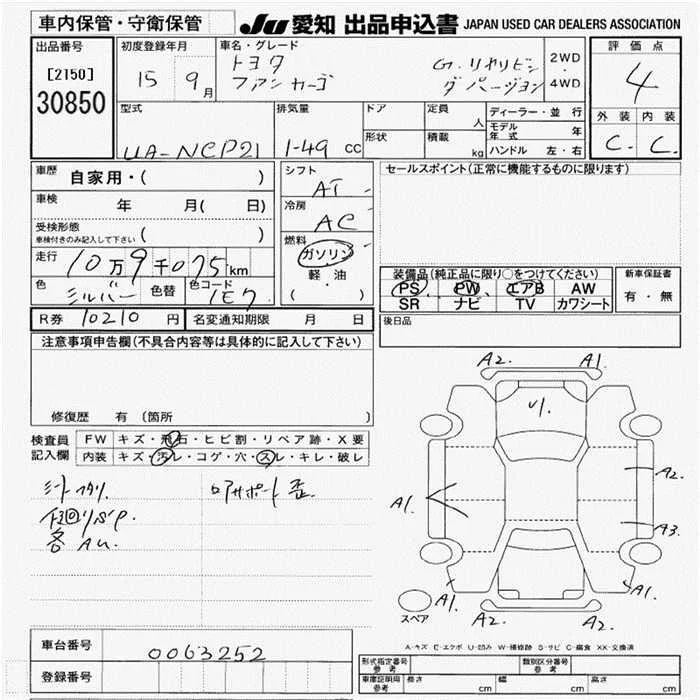 車内保管・守衛保管
JU 愛知 出品申込書 JAPAN USED CAR DEALERS ASSOCIATION
出品番号
[2150]
30850
初度登録年月
15 9月
車名・グレード
トヨタ
ファンカーゴ
G. リヤリビン
グバージョン
2WD
・
4WD
評価点
4
外装 内装
C. C.
型式
UA-NCP21
排気量
1-49 CC
ドア
形状
定員
人
積載
kg
ディーラー・並行
モデル年式 年
ハンドル 左・右
車歴
自家用・( )
車検
年 月( 日)
受検形態
車検付きのみ記入して下さい ( )
走行
10万9千075km
色
シルバー
色替
色コード
1E7
シフト
AT
冷房
AC
燃料
ガソリン
軽・油
・
( )
セールスポイント(正常に機能するものに限ります)
装備品(純正品に限り○をつけてください)
PS PW エアB AW
SR ナビ TV カワシート
新車保証書
有・無
R券 10210 円
名変通知期限 月 日
後日品
注意事項申告欄(不具合内容等は具体的に記入して下さい)
修復歴 有(箇所 )
検査員
記入欄
FW キズ・飛石・ヒビ割・リペア跡・X要
内装 キズ・汚レ・コゲ・穴・スレ・キレ・破レ
シートヘタリ.
下廻りSP.
各AU.
ロアサポート歪
A2. A1.
U1.
A1.
A2.
A3.
A1. A1.
A2. A2.
スペア
A-キズ E-エクボ U-凹み W-補修跡 S-サビ C-腐食 XX-交換済
車台番号
0063252
登録番号
型式指定番号
参考
類別区分番号
参考
車庫証明用
参考
長さ cm
幅 cm
高さ cm